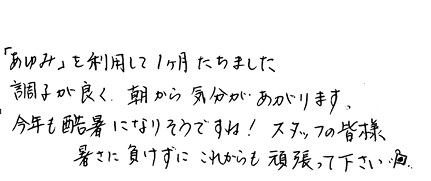 「あゆみ」を利用して1ヶ月たちました
調子が良く、朝から気分があがります、
今年も酷暑になりそうですね！スタッフの皆様
暑さに負けずにこれからも頑張って下さい